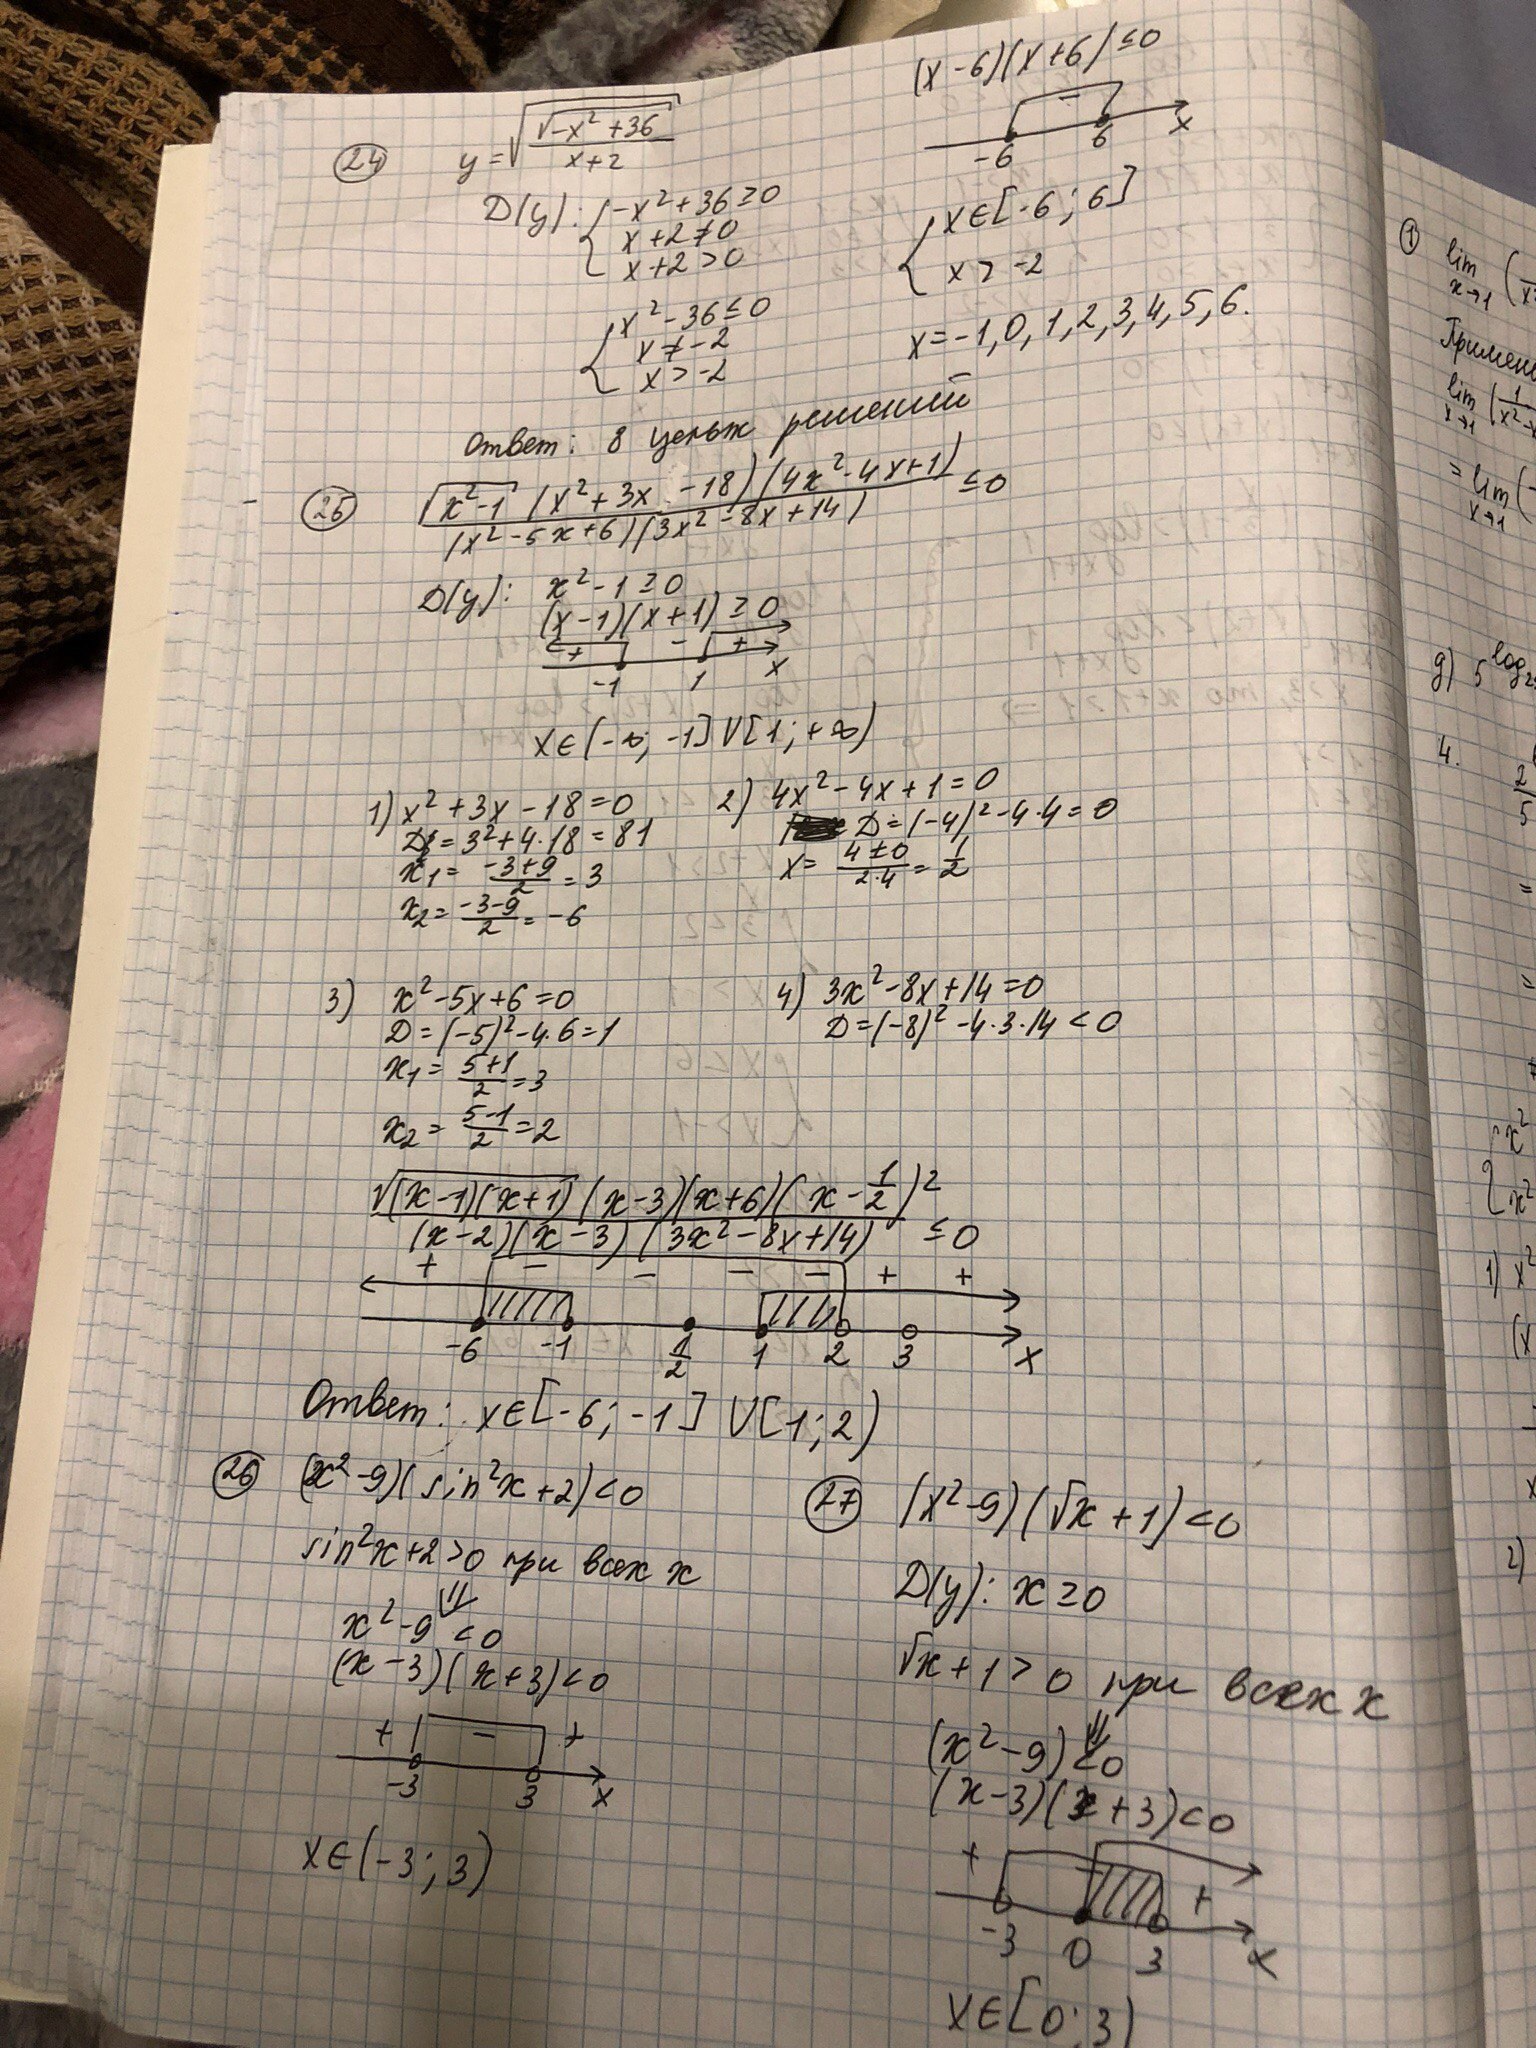 24 y = √(√(-x² + 36) / (x+2))
D(y): { -x² + 36 ≥ 0
x + 2 ≠ 0
x + 2 > 0
{ x² - 36 ≤ 0
x ≠ -2
x > -2
(x - 6)(x + 6) ≤ 0
-
-6 6 x
{ x ∈ [-6; 6]
x > -2
x = -1, 0, 1, 2, 3, 4, 5, 6.
Ответ: 8 целых решений
25 √(x² - 1) (x² + 3x - 18)(4x² - 4x + 1) / (x² - 5x + 6)(3x² - 8x + 14) ≤ 0
D(y): x² - 1 ≥ 0
(x - 1)(x + 1) ≥ 0
+ - +
-1 1 x
x ∈ (-∞; -1] ∪ [1; +∞)
1) x² + 3x - 18 = 0
D = 3² + 4·18 = 81
x₁ = (-3+9)/2 = 3
x₂ = (-3-9)/2 = -6
2) 4x² - 4x + 1 = 0
D = (-4)² - 4·4 = 0
x = (4±0)/(2·4) = 1/2
3) x² - 5x + 6 = 0
D = (-5)² - 4·6 = 1
x₁ = (5+1)/2 = 3
x₂ = (5-1)/2 = 2
4) 3x² - 8x + 14 = 0
D = (-8)² - 4·3·14 < 0
√((x-1)(x+1)) (x-3)(x+6)(x - 1/2)² / (x-2)(x-3)(3x² - 8x + 14) ≤ 0
+ - - - - + +
-6 -1 1/2 1 2 3 x
Ответ: x ∈ [-6; -1] ∪ [1; 2)
26 (x² - 9)(sin²x + 2) < 0
sin²x + 2 > 0 при всех x
⇓
x² - 9 < 0
(x - 3)(x + 3) < 0
+ - +
-3 3 x
x ∈ (-3; 3)
27 (x² - 9)(√x + 1) < 0
D(y): x ≥ 0
√x + 1 > 0 при всех x
⇓
(x² - 9) < 0
(x - 3)(x + 3) < 0
+ - +
-3 0 3 x
x ∈ [0; 3)
1 lim x→1 (
lim x→1 (1/
= lim x→1 (
g) 5
4.
2/5
=
=
{ x²
x²
1) x²
(x
x
2)